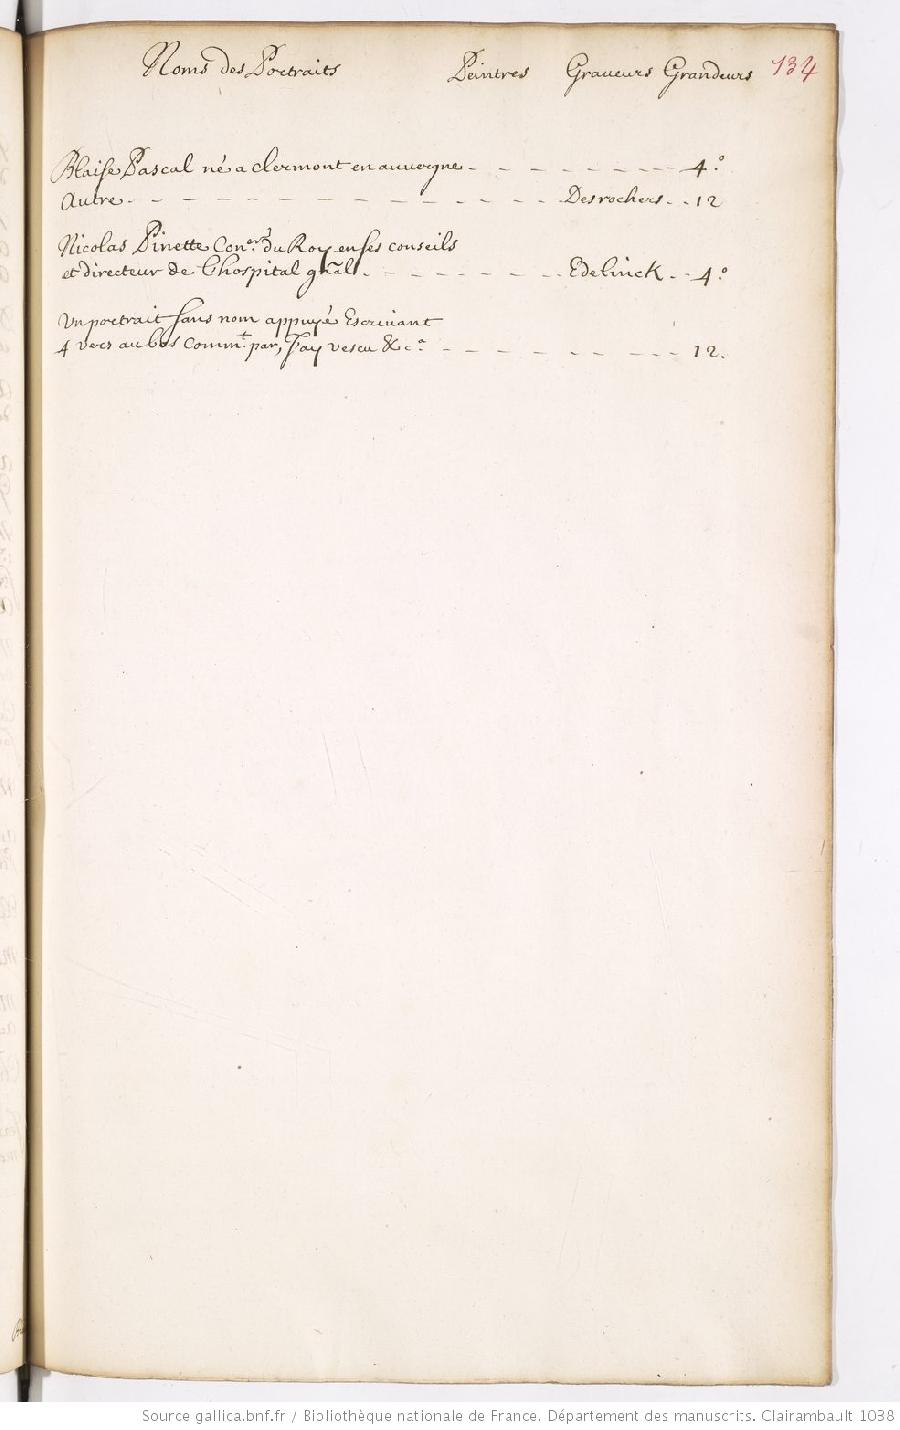 Noms des Portraits Peintres Graueurs Grandeurs 134
Blaise Pascal né a Clermont en auuergne - - - - - - - - 4.°
Autre - - - - - - - - - - - - - - - - Desrochers - - 12
Nicolas Pinette Con.er du Roy en ses conseils
et directeur de L'hospital gñal - - - - - - - - Edelinck - - 4.°
Un portrait sans nom appuyé Escriuant
4 vers au bas Comm.t par, J'ay vescu &c.a - - - - - - - - 12.
Source gallica.bnf.fr / Bibliothèque nationale de France. Département des manuscrits. Clairambault 1038